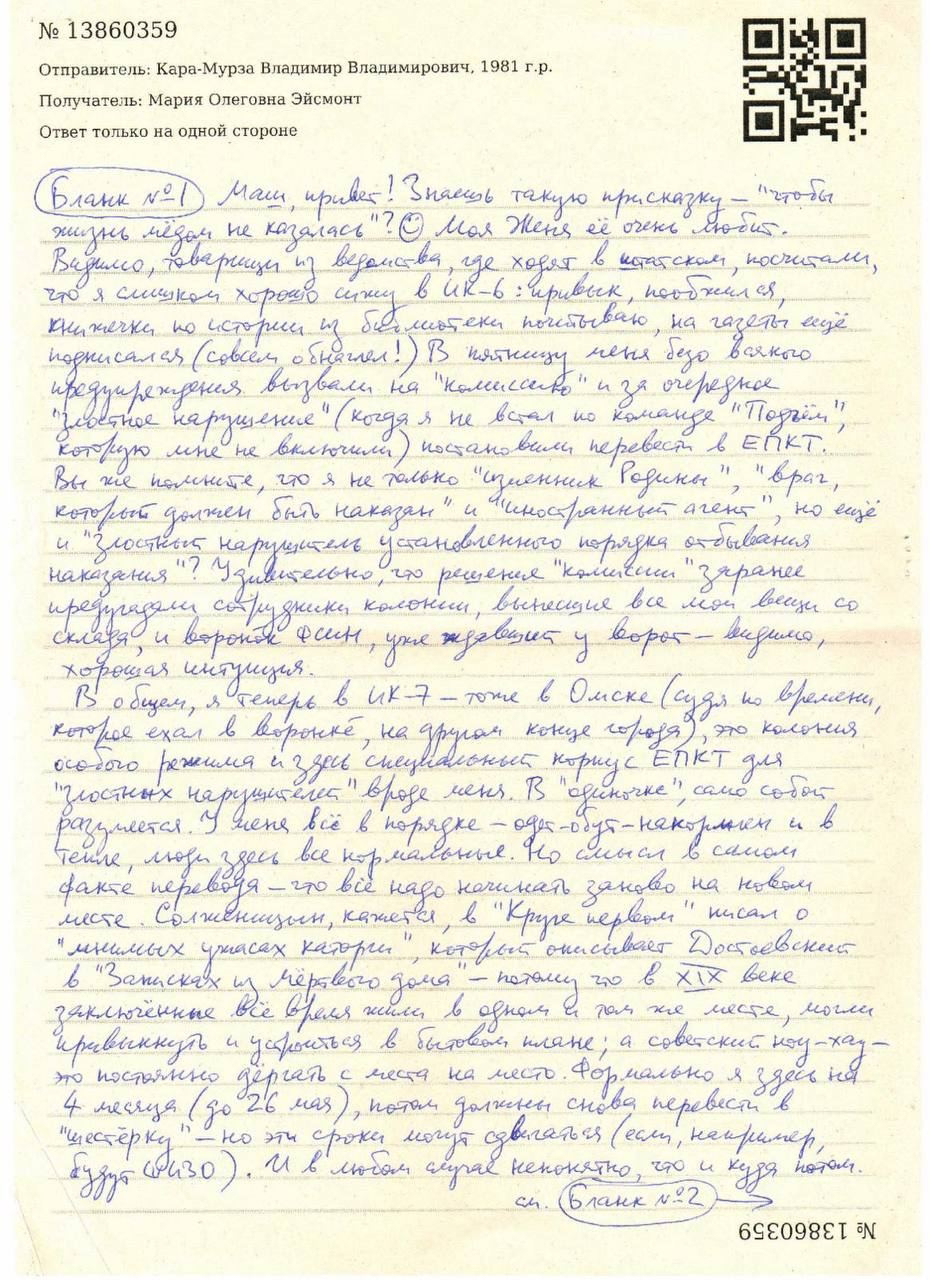 № 13860359
Отправитель: Кара-Мурза Владимир Владимирович, 1981 г.р.
Получатель: Мария Олеговна Эйсмонт
Ответ только на одной стороне
Бланк №1 Маш, привет! Знаешь такую присказку – "чтобы
жизнь мёдом не казалась"? ☺ Моя Женя её очень любит.
Видимо, товарищи из ведомства, где ходят в штатском, посчитали,
что я слишком хорошо сижу в ИК-6: привык, пообжился,
книжечки по истории из библиотеки почитываю, на газеты ещё
подписался (совсем обнаглел!) В пятницу меня безо всякого
предупреждения вызвали на "комиссию" и за очередное
"злостное нарушение" (когда я не встал по команде "Подъём",
которую мне не включили) постановили перевести в ЕПКТ.
Вы же помните, что я не только "изменник Родины", "враг,
который должен быть наказан" и "иностранный агент", но ещё
и "злостный нарушитель установленного порядка отбывания
наказания"? Удивительно, что решение "комиссии" заранее
предугадали сотрудники колонии, вынесшие все мои вещи со
склада, и воронок ФСИН, уже ждавший у ворот – видимо,
хорошая интуиция.
В общем, я теперь в ИК-7 – тоже в Омске (судя по времени,
которое ехал в воронке, на другом конце города), это колония
особого режима и здесь специальный корпус ЕПКТ для
"злостных нарушителей" вроде меня. В "одиночке", само собой
разумеется. У меня всё в порядке – одет-обут-накормлен и в
тепле, люди здесь все нормальные. Но смысл в самом
факте перевода – что всё надо начинать заново на новом
месте. Солженицын, кажется, в "Круге первом" писал о
"мнимых ужасах каторги", который описывает Достоевский
в "Записках из Мёртвого дома" – потому что в XIX веке
заключённые всё время жили в одном и том же месте, могли
привыкнуть и устроиться в бытовом плане; а советский ноу-хау –
это постоянно дёргать с места на место. Формально я здесь на
4 месяца (до 26 мая), потом должны снова перевести в
"шестёрку" – но эти сроки могут сдвигаться (если, например,
будут ШИЗО). И в любом случае непонятно, что и куда потом.
см. Бланк №2 →
№ 13860359